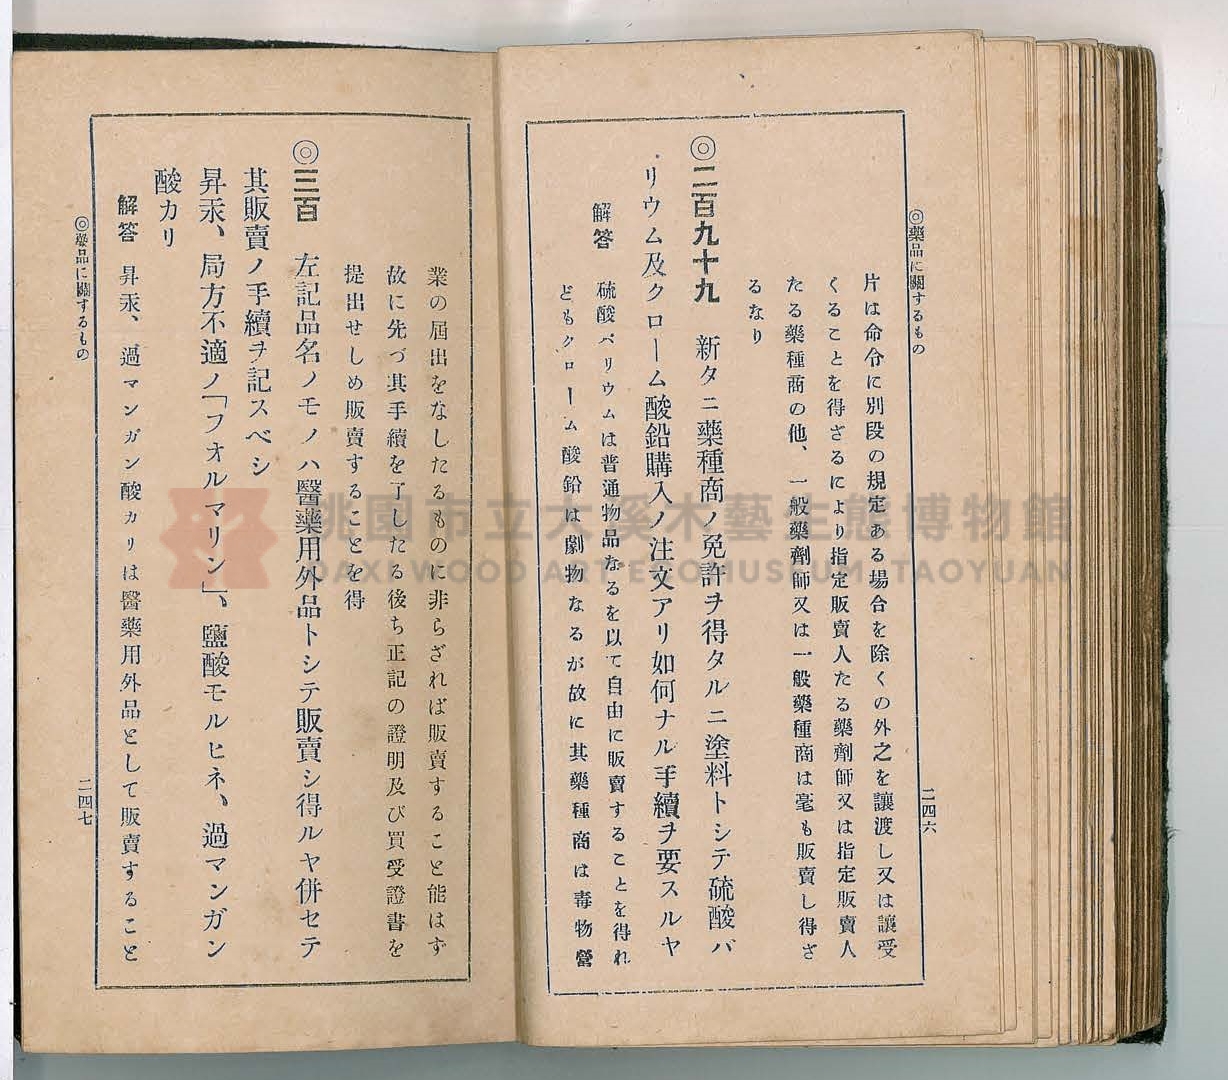 ◎藥品に關するもの
片は命令に別段の規定ある場合を除くの外之を讓渡し又は讓受
くることを得ざるにより指定販賣人たる藥劑師又は指定販賣人
たる藥種商の他、一般藥劑師又は一般藥種商は毫も販賣し得ざ
るなり
◎二百九十九 新タニ藥種商ノ免許ヲ得タルニ塗料トシテ硫酸バ
リウム及クローム酸鉛購入ノ注文アリ如何ナル手續ヲ要スルヤ
解答 硫酸バリウムは普通物品なるを以て自由に販賣することを得れ
どもクローム酸鉛は劇物なるが故に其藥種商は毒物營
二四六
業の屆出をなしたるものに非らざれば販賣すること能はず
故に先づ其手續を了したる後ち正記の證明及び買受證書を
提出せしめ販賣することを得
◎三百 左記品名ノモノハ醫藥用外品トシテ販賣シ得ルヤ併セテ
其販賣ノ手續ヲ記スベシ
昇汞、局方不適ノ「フォルマリン」、鹽酸モルヒネ、過マンガン
酸カリ
解答 昇汞、過マンガン酸カリは醫藥用外品として販賣すること
◎藥品に關するもの
二四七
桃園市立大溪木藝生態博物館
DAXI WOOD ART ECOMUSEUM, TAOYUAN